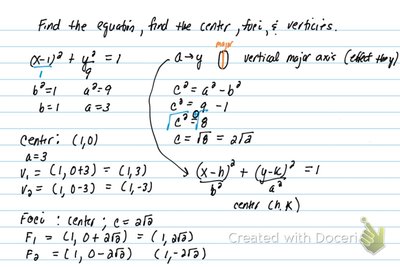 Find the equatin, find the center, foci, & verticies.
(x-1)²/1 + y²/9 = 1
b²=1 a²=9
b=1 a=3
center: (1,0)
a=3
V₁ = (1, 0+3) = (1,3)
V₂ = (1, 0-3) = (1,-3)
Foci : center ; c = 2√2
F₁ = (1, 0+2√2) = (1, 2√2)
F₂ = (1, 0-2√2) (1,-2√2)
major
a→y vertical major axis
c² = a² - b²
c² = 9 - 1
√c² = √8
c = √8 = 2√2
(x-h)²/b² + (y-k)²/a² = 1
center (h,k)
Created with Doceri